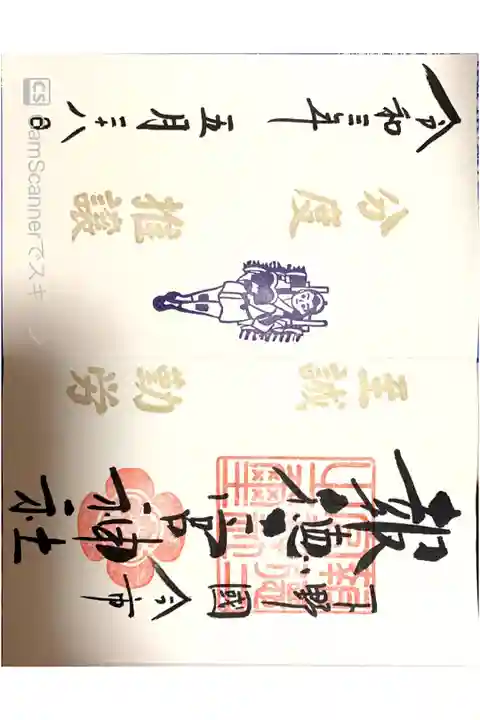 下野國
今市
報徳二宮
神社
至誠
勤労
分度
推譲
令和三年
五月二十八日
CS CamScannerでスキ